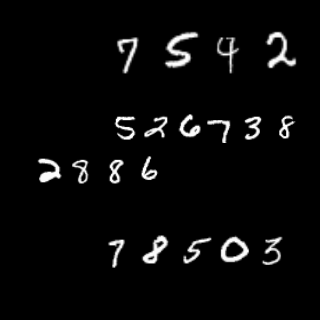 7 5 4 2
5 2 6 7 3 8
2 8 8 6
7 8 5 0 3